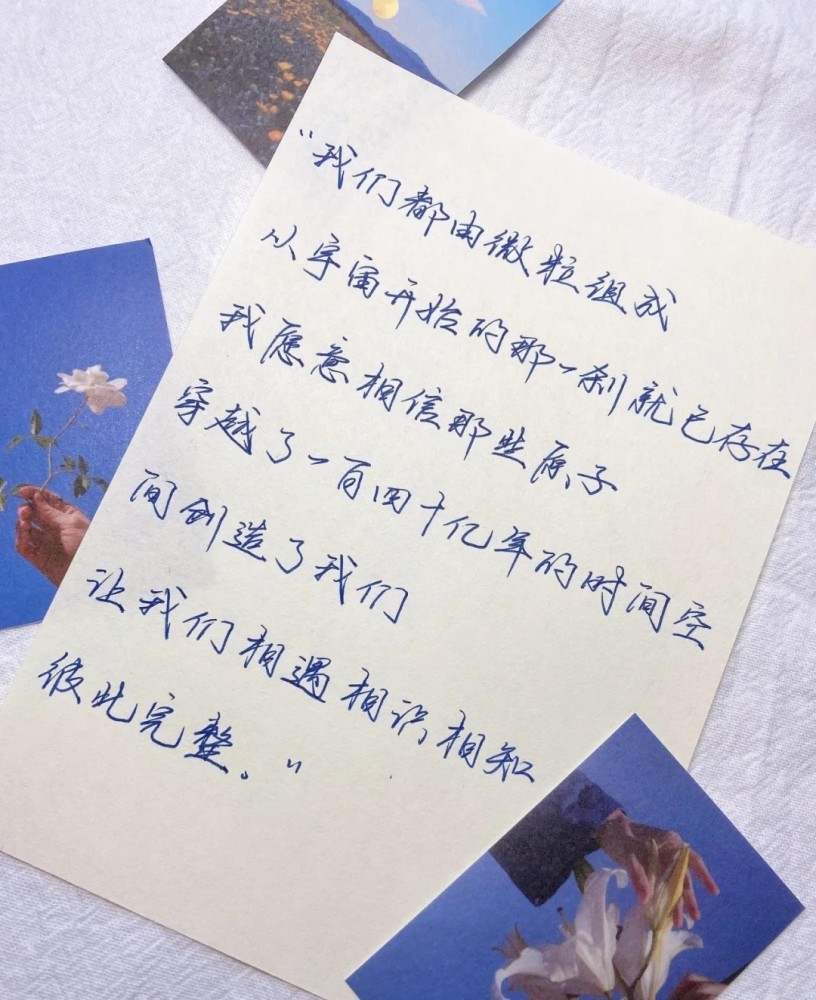 “我们都由微粒组成
从宇宙开始的那一刹就已存在
我愿意相信那些原子
穿越了一百四十亿年的时间空
间创造了我们
让我们相遇相识相知
彼此完整。”